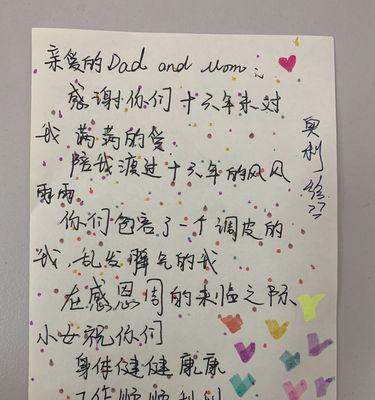 亲爱的Dad and Mom:
感谢你们十六年来对
我 满满的爱
陪我渡过十六年的风风
雨雨
你们包容了一个调皮的
我,乱发脾气的我
在感恩周的来临之际
小女祝你们
身体健健康康
工作顺顺利利
奥利给!!